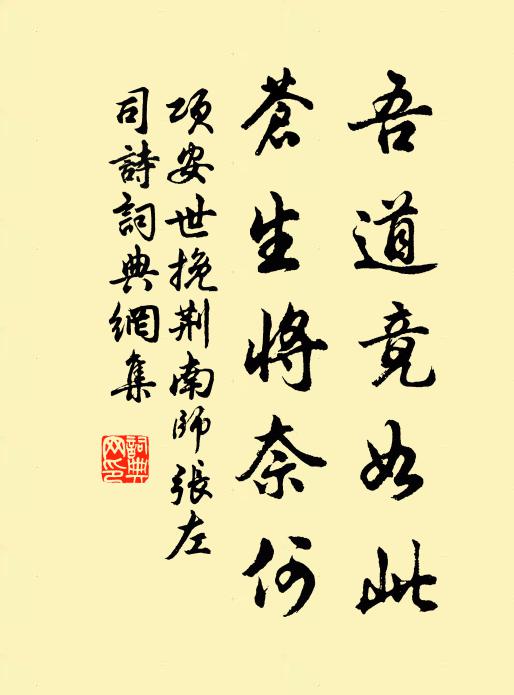 吾道竟如此
蒼生將奈何
項安世挽荆南師張左
司詩詞典網集
詞典网印